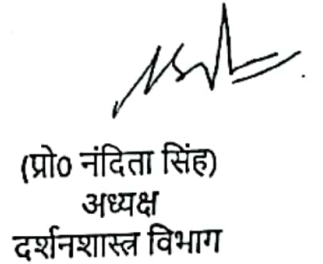 (प्रो0 नंदिता सिंह)
अध्यक्ष
दर्शनशास्त्र विभाग